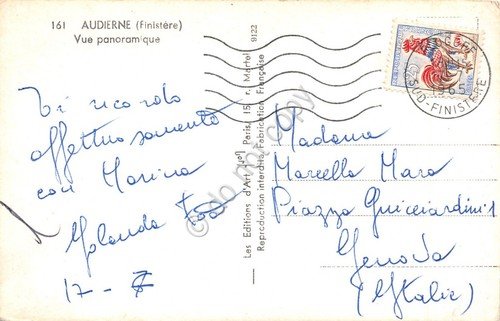 161 AUDIERNE (Finistère)
Vue panoramique
9122
Ti ricordo
affettuosamente
con Marina
Yolanda
17 - 7
Les Editions d'Art "Yo", Paris, 15, r. Martel
Reproduction interdite. Fabrication Française
do not copy
SUD-FINISTÈRE
1965
Madame
Marcella Mara
Piazza Guicciardini 5
Genova
(Italie)